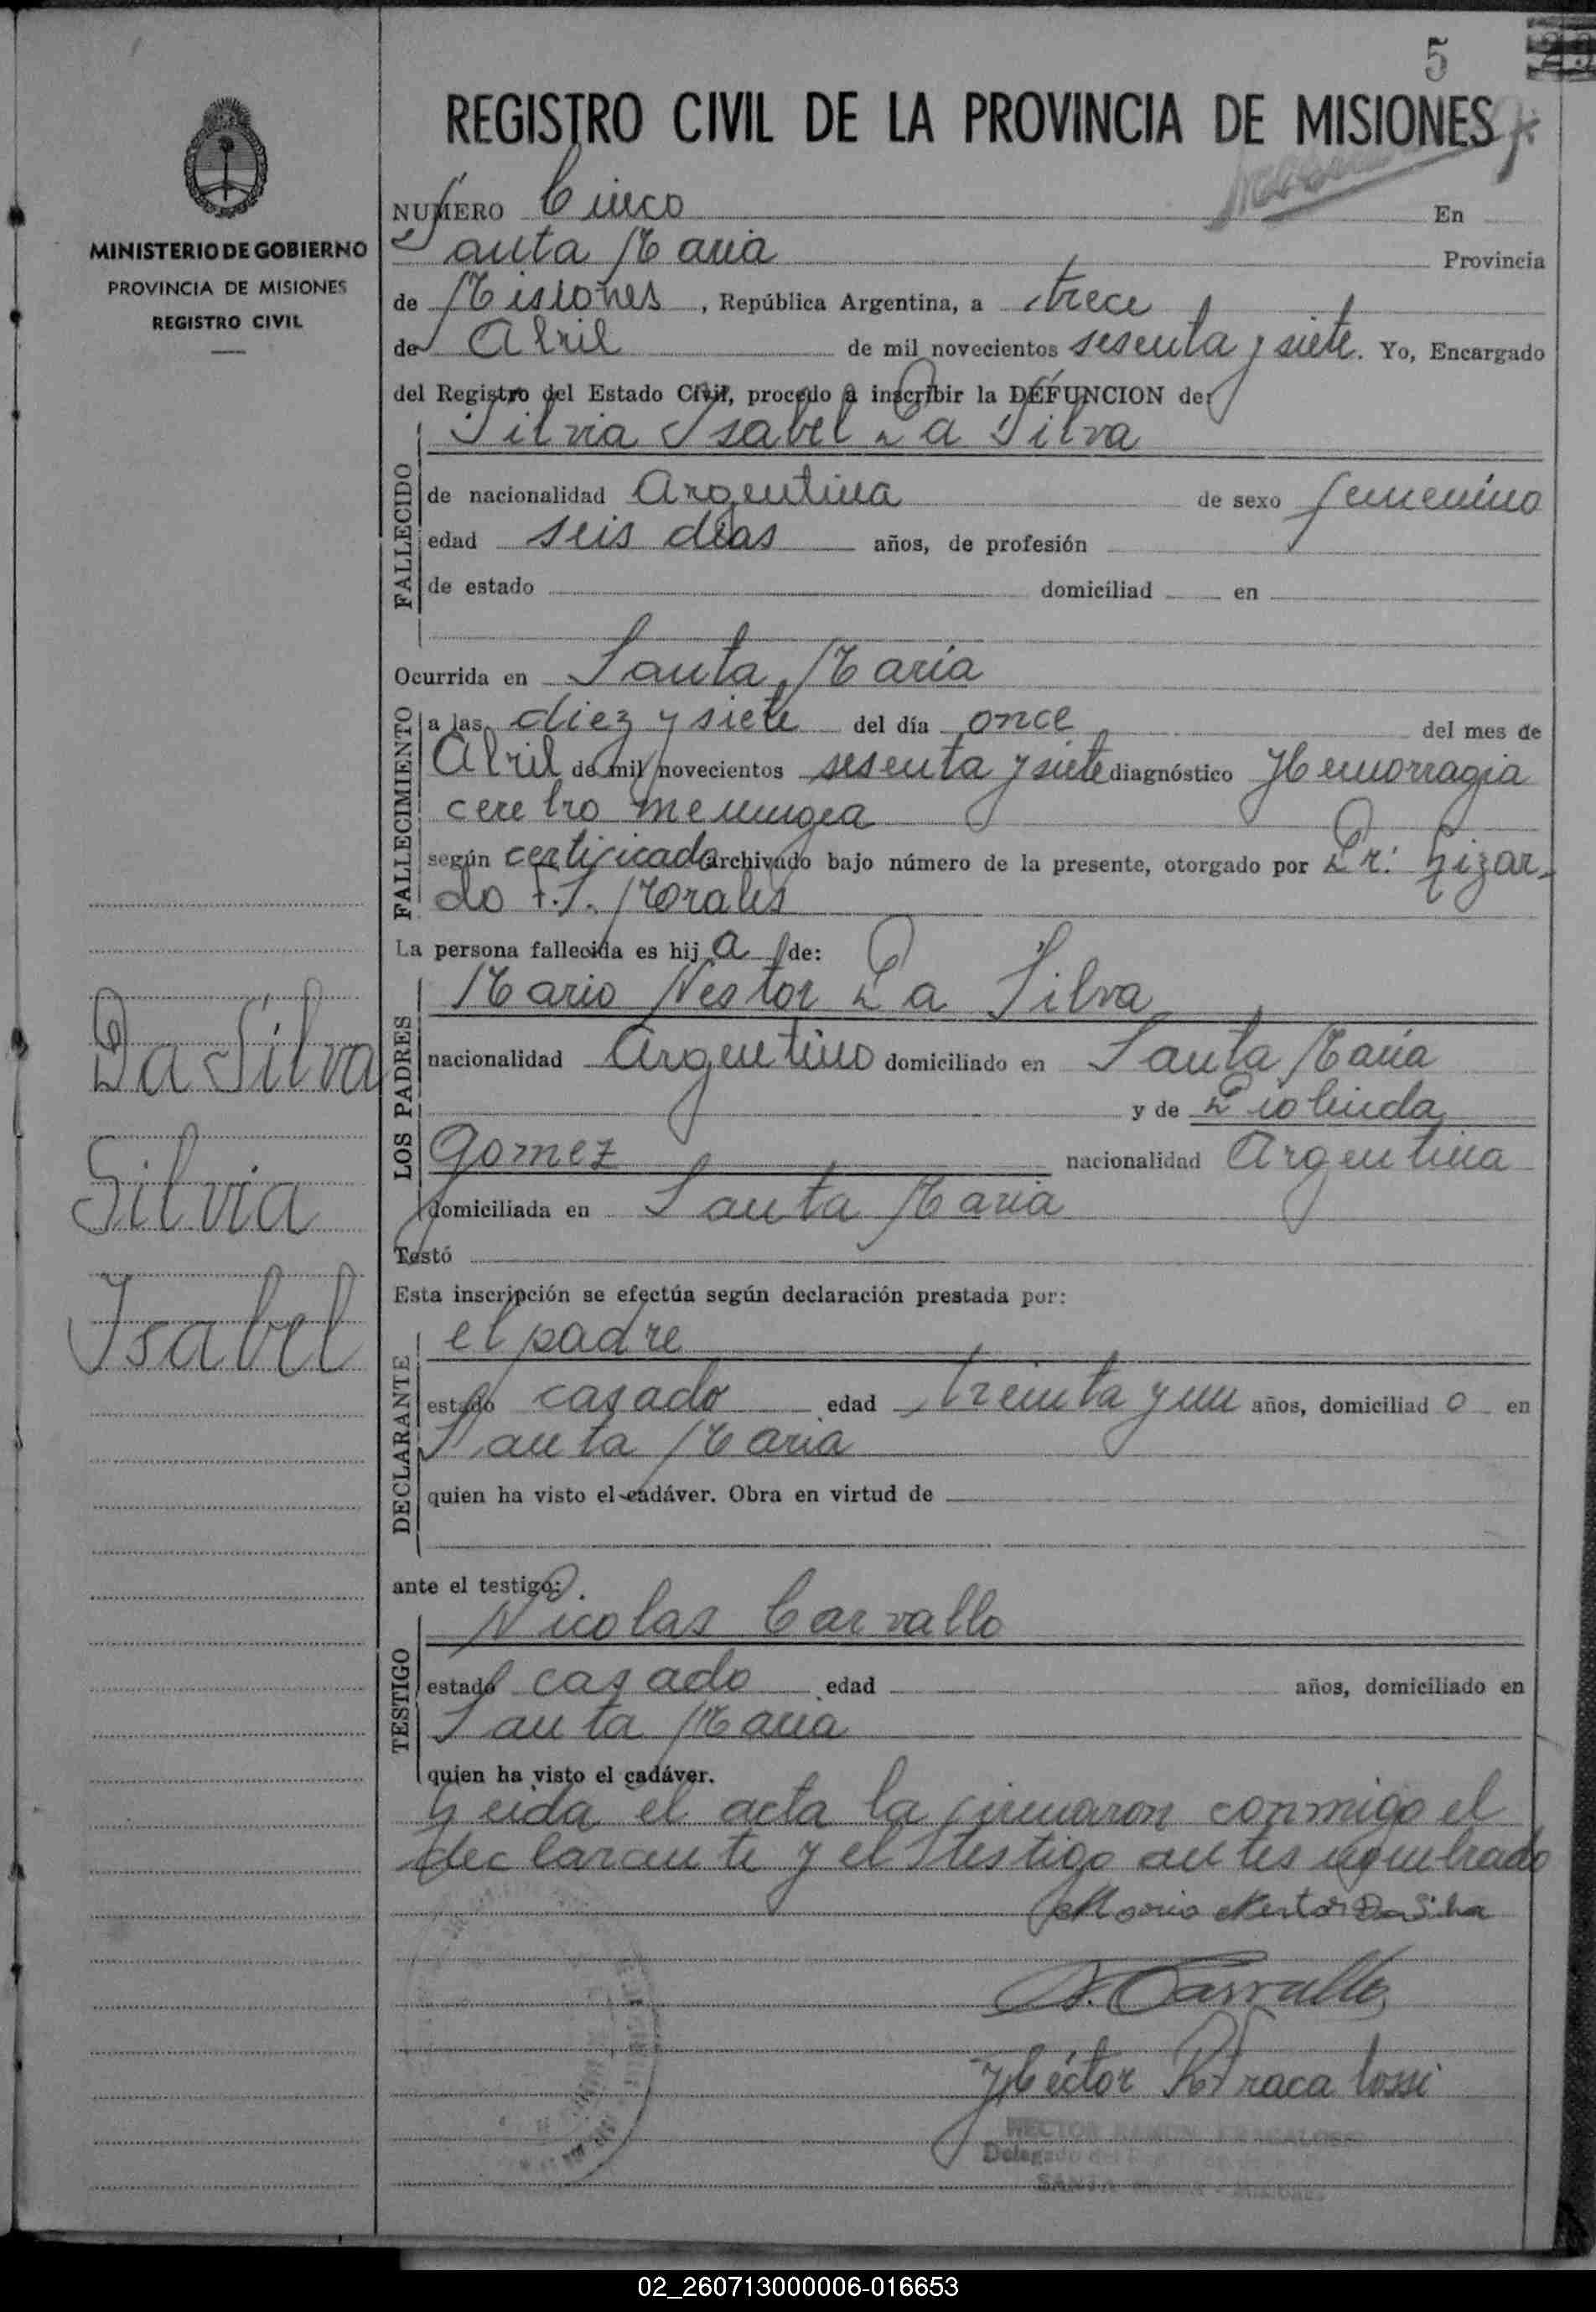 5
REGISTRO CIVIL DE LA PROVINCIA DE MISIONES
MINISTERIO DE GOBIERNO
PROVINCIA DE MISIONES
REGISTRO CIVIL
Da Silva
Silvia
Isabel
NUMERO Cinco En
Santa Maria Provincia
de Misiones, República Argentina, a trece
de Abril de mil novecientos sesenta y siete. Yo, Encargado
del Registro del Estado Civil, procedo a inscribir la DEFUNCION de:
Silvia Isabel Da Silva
FALLECIDO
de nacionalidad Argentina de sexo femenino
edad seis días años, de profesión
de estado domiciliad en
Ocurrida en Santa María
FALLECIMIENTO
a las diez y siete del día once del mes de
Abril de mil novecientos sesenta y siete diagnóstico Hemorragia
cerebro meningea
según certificado archivado bajo número de la presente, otorgado por Dr. Lizar-
do F. S. Morales
La persona fallecida es hij a de:
LOS PADRES
Mario Nestor Da Silva
nacionalidad Argentino domiciliado en Santa María
y de Diolinda
Gomez nacionalidad Argentina
domiciliada en Santa Maria
Testó
Esta inscripción se efectúa según declaración prestada por:
DECLARANTE
el padre
estado casado edad treinta y un años, domiciliad o en
Santa Maria
quien ha visto el cadáver. Obra en virtud de
ante el testigo:
TESTIGO
Nicolas Carvallo
estado casado edad años, domiciliado en
Santa Maria
quien ha visto el cadáver.
Leida el acta la firmaron conmigo el
declarante y el testigo antes nombrado
Mario Nestor Da Silva
N. Carvallo
Héctor R Fracalossi
HECTOR RAMON FRACALOSSI
Delegado del
SANTA MARIA - Misiones
02_260713000006-016653